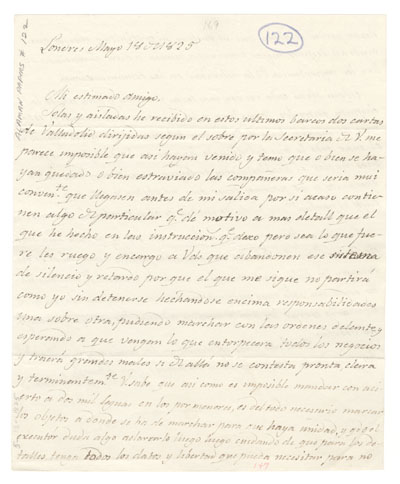 189
122
ALAMAN PAPERS # 122
Londres Mayo 18 de 1825
Mi estimado amigo.
Solas y aisladas he recibido en estos ultimos barcos dos cartas
de Valladolid dirijidas segun el sobre por la Secretaria de V. me
parece imposible que asi hayan venido y temo que o bien se ha-
yan quedado o bien estraviado las compañeras que seria mui
convente. que llegasen antes de mi salida por si acaso contie-
nen algo de particular qe. de motivo a mas detall que el
que he hecho en las instruccion. qe. dexo pero sea lo que fue-
re les ruego y encargo a Vds que abandonen ese sistema
de silencio y retardo por que el que me sigue no partirá
como yo sin detenerse hechandose encima responsabilidades
una sobre otra, pudiendo marchar con las ordenes delante, y
esperando a que vengan lo que entorpecera todos los negocios
y traerá grandes males si de allá no se contesta pronta clara
y terminantemte. V. sabe que asi como es imposible mandar con aci-
erto a dos mil leguas en los por menores, es del todo necesario marcar
los objetos a donde se ha de marchar para que haya unidad, y si el
executor duda algo aclararlo luego luego cuidando de que para los de-
talles tenga todos los datos y libertad que pueda necesitar, para no